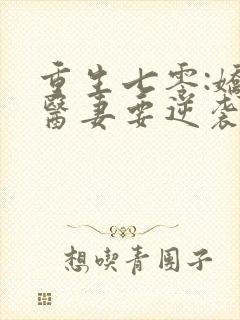 重生七零:嬌
醫妻要逆袭
想喫青團子